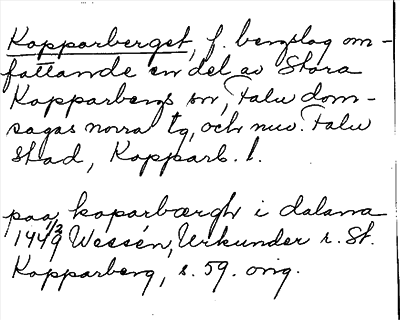 Kopparberget, f. bergslag om-
fattande en del av Stora
Kopparbergs sn, Falu dom-
sagas norra tg, och nuv. Falu
stad, Kopparb. l.
paa koparbærgh i dalarna
1/3 1449 Wessén, Urkunder r. St.
Kopparberg, s. 59. orig.